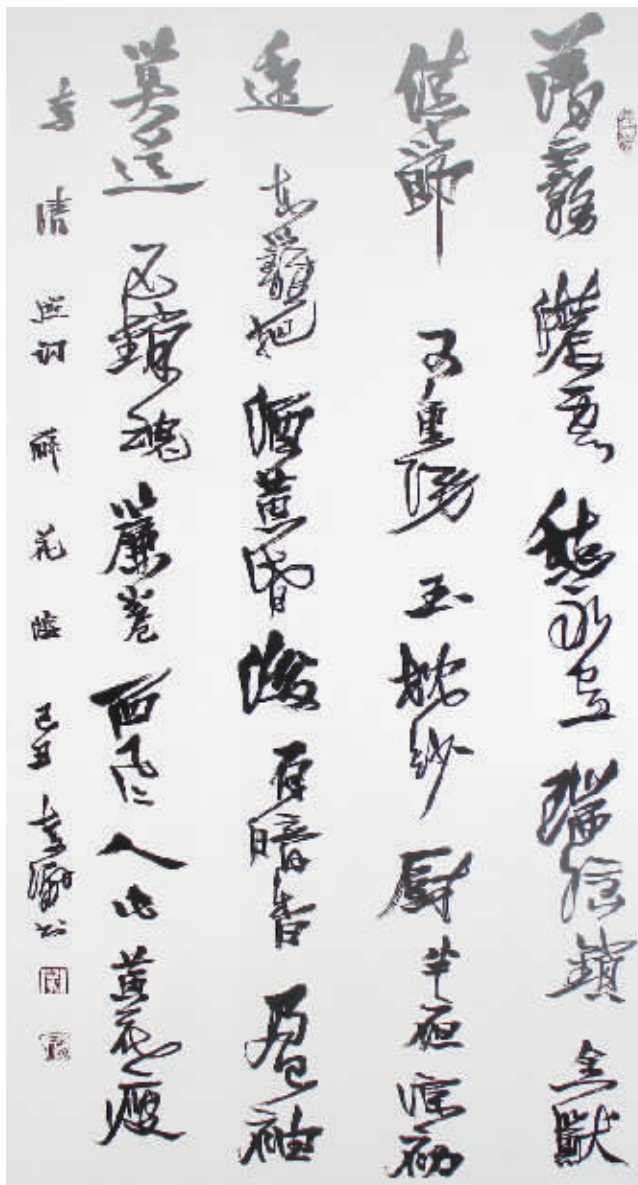 薄霧濃雲愁永晝瑞腦鎖金獸
佳節又重陽玉枕紗厨半夜涼初
透東籬把酒黃昏後有暗香盈袖
莫道不銷魂簾卷西風人比黃花瘦
李清照詞醉花陰己丑李書